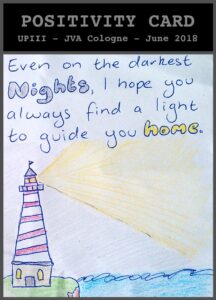 POSITIVITY CARD
UPIII - JVA Cologne - June 2018
Even on the darkest
Nights, I hope you
always find a light
to guide you home.